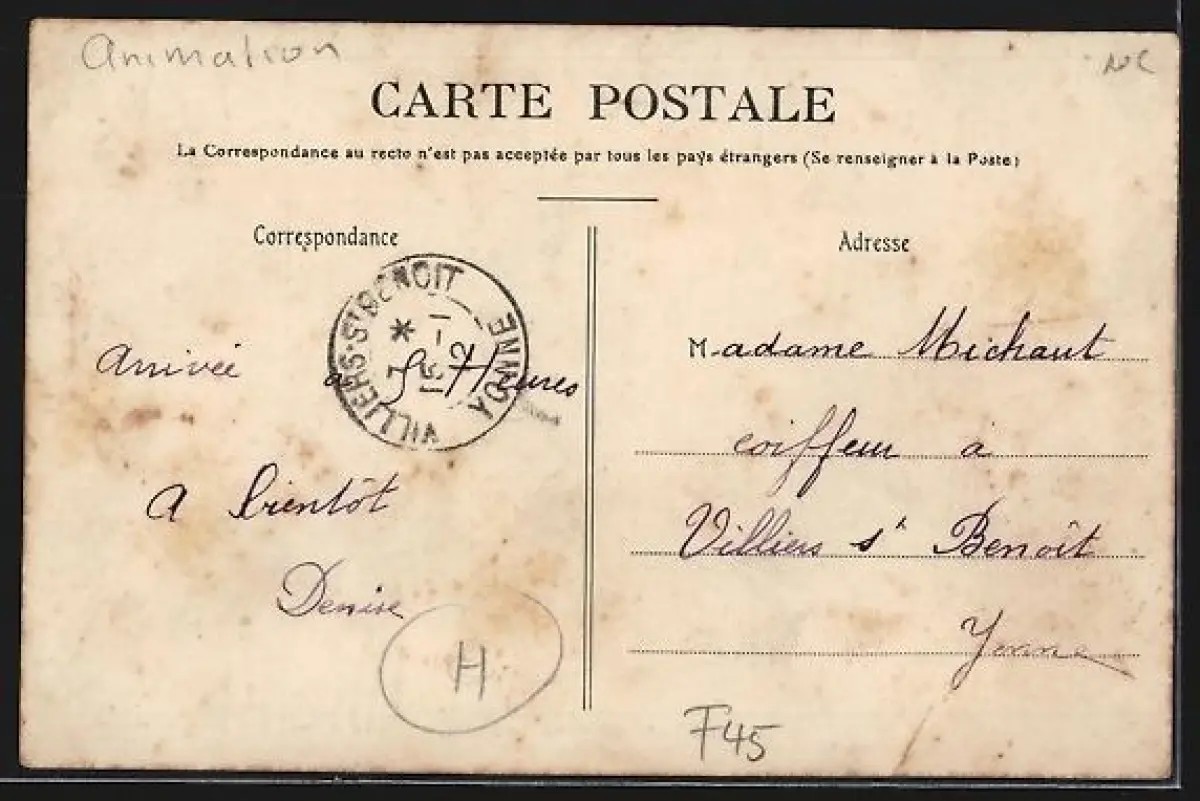 Animation
CARTE POSTALE
La Correspondance au recto n'est pas acceptée par tous les pays étrangers (Se renseigner à la Poste)
Correspondance
VILLIERS-St BENOIT
YONNE
Arrivée a 5 Heures
A bientôt
Denise
H
Adresse
Madame Michaut
coiffeur à
Villiers st Benoît
Yonne
F45